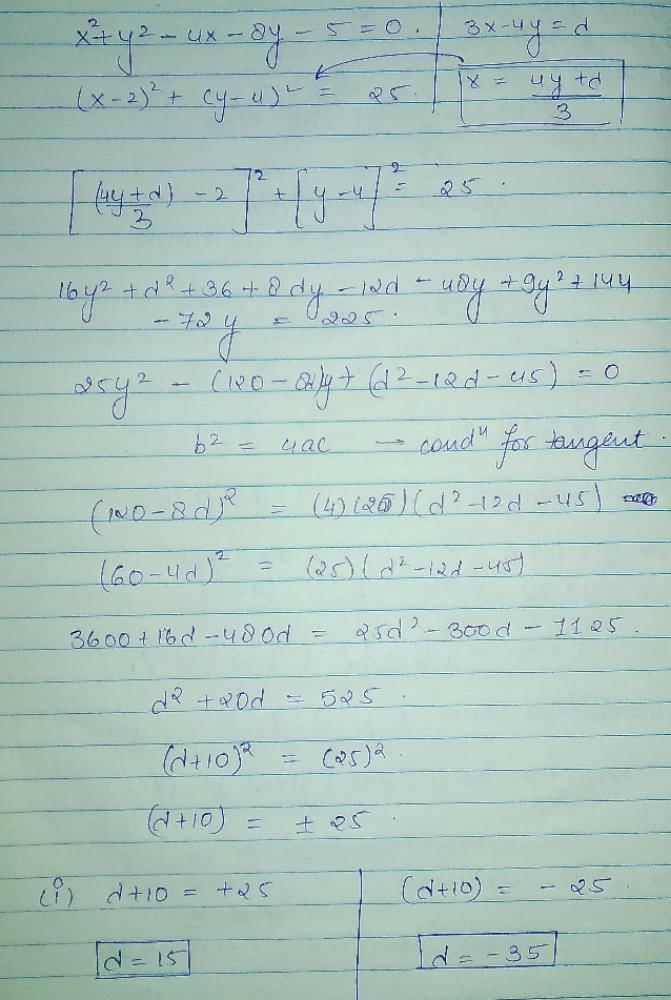 x²+y² - 4x - 8y - 5 = 0. | 3x-4y = d
(x-2)² + (y-4)² = 25. | x = (4y+d)/3
[(4y+d)/3 - 2]² + [y-4]² = 25.
16y² + d² + 36 + 8dy - 12d - 48y + 9y² + 144
- 72y = 225.
25y² - (120-8d)y + (d²-12d-45) = 0
b² = 4ac → condⁿ for tangent.
(120-8d)² = (4)(25)(d²-12d-45)
(60-4d)² = (25)(d²-12d-45)
3600+16d-480d = 25d²-300d-1125.
d² + 20d = 525.
(d+10)² = (25)².
(d+10) = ± 25.
(i) d+10 = +25 | (d+10) = - 25.
d = 15 | d = -35